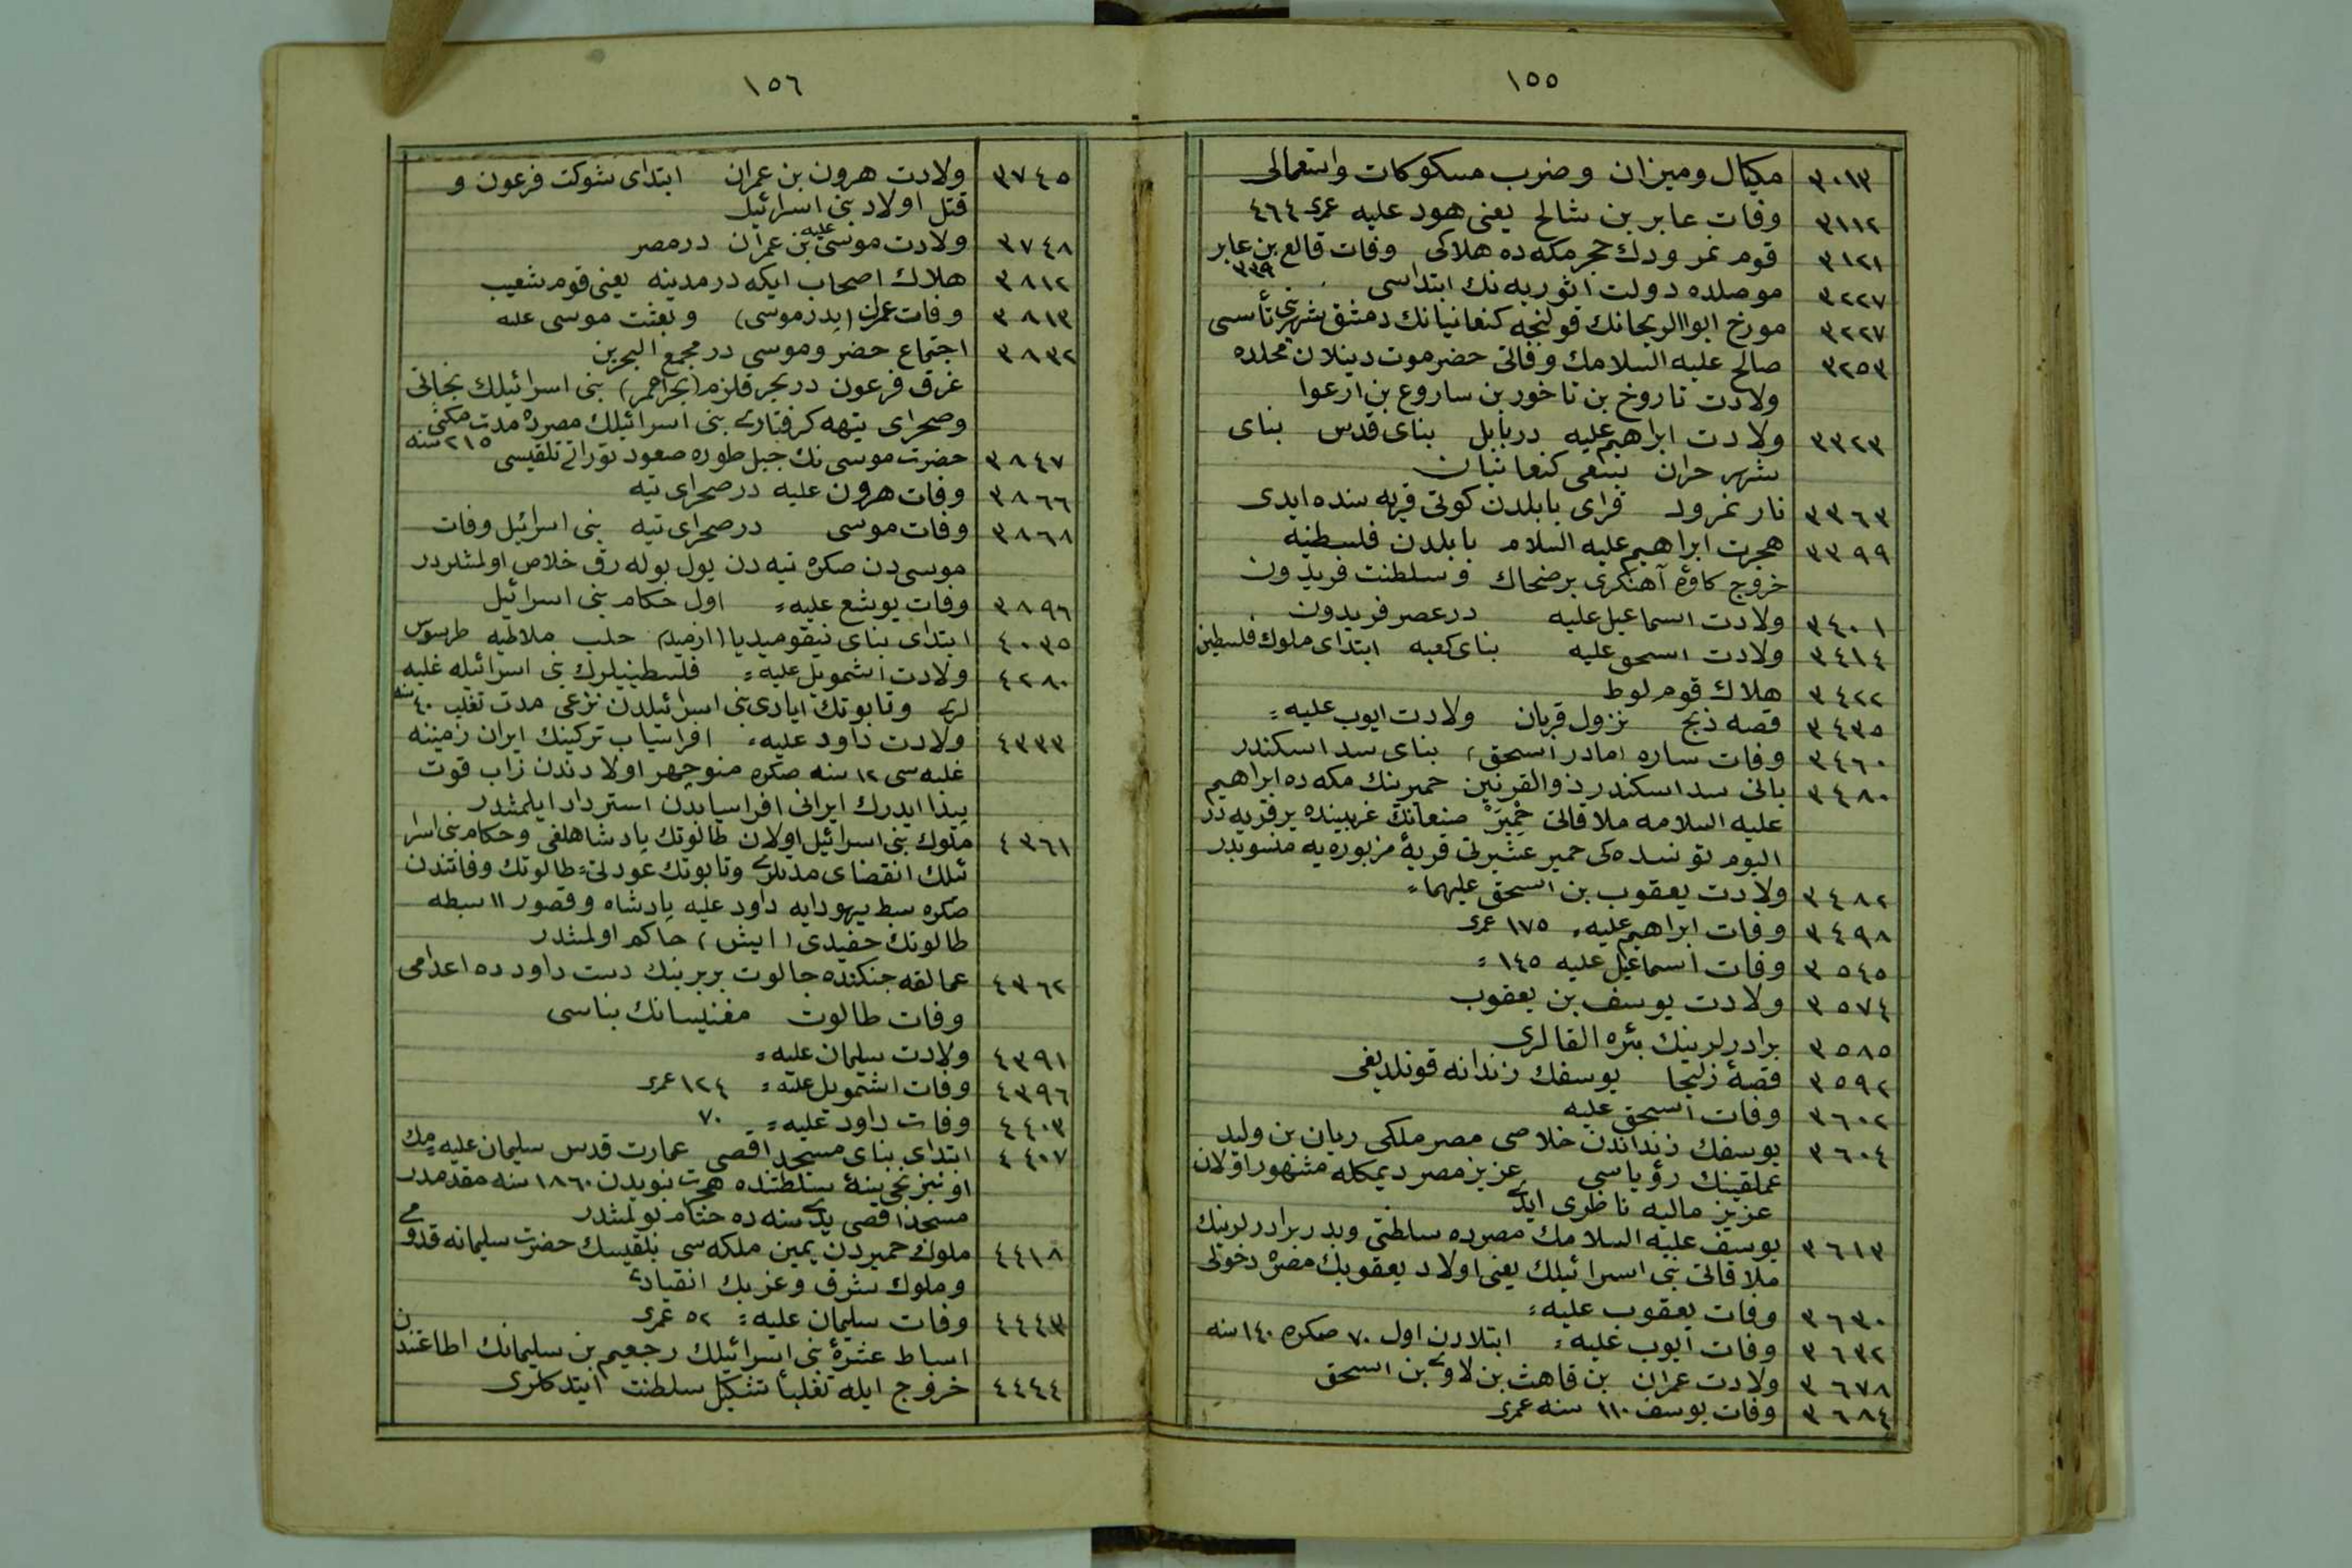 ١٥٥
٣٠١٣ مكيال وميزان وضرب مسكوكات واستعمالى
٣١١٢ وفات عابر بن شالح يعنى هود عليه عمرى ٤٦٤
٣١٢١ قوم نمرودك حجر مكه ده هلاكى وفات قالع بن عابر ٣٣٩
٣٢٢٧ موصلده دولت اثوريه نك ابتداسى
٣٢٢٧ مورخ ابو الريحانك قولنجه كنعانيانك دمشق شهرينى تأسسى
٣٢٥٣ صالح عليه السلامك وفاتى حضرموت دينلان محلده
ولادت تاروخ بن تاخور بن ساروع بن ارعوا
٣٣٢٣ ولادت ابراهيم عليه در بابل بناى قدس بناى
شهر حران بسعى كنعانيان
٣٣٦٣ نار نمرود قراى بابلدن كوتى قريه سنده ايدى
٣٣٩٩ هجرت ابراهيم عليه السلام بابلدن فلسطينه
خروج كاوۀ آهنكرى بر ضحاك و سلطنت فريدون
٣٤٠١ ولادت اسماعيل عليه در عصر فريدون
٣٤١٤ ولادت اسحق عليه بناى كعبه ابتداى ملوك فلسطين
٣٤٢٢ هلاك قوم لوط
٣٤٣٥ قصه ذبح نزول قربان ولادت ايوب عليه =
٣٤٦٠ وفات ساره (مادر اسحق) بناى سد اسكندر
٣٤٨٠ بانى سد اسكندر ذو القرنين حميرينك مكه ده ابراهيم
عليه السلامه ملاقاتى حِمْيَرْ صنعانك غربينده بر قريه در
اليوم تونسده كى حمير عشيرتى قريۀ مزبوره يه منسوبدر
٣٤٨٢ ولادت يعقوب بن اسحق عليهما =
٣٤٩٨ وفات ابراهيم عليه = ١٧٥ عمرى
٣٥٤٥ وفات اسماعيل عليه ١٤٥ =
٣٥٧٤ ولادت يوسف بن يعقوب
٣٥٨٥ برادرلرينك بئره القالرى
٣٥٩٢ قصۀ زليخا يوسفك زندانه قونلديغى
٣٦٠٢ وفات اسحق عليه
٣٦٠٤ يوسفك زنداندن خلاصى مصر ملكى ريان بن وليد
عملقينك رؤياسى عزيز مصر ديمكله مشهور اولان
عزيز ماليه ناظرى ايدى
٣٦١٣ يوسف عليه السلامك مصرده سلطنتى وپدر برادرلرينك
ملاقاتى بنى اسرائيلك يعنى اولاد يعقوبك مصره دخولى
٣٦٣٠ وفات يعقوب عليه =
٣٦٣٢ وفات ايوب عليه = ابتلادن اول ٧٠ صكره ١٤٠ سنه
٣٦٧٨ ولادت عمران بن قاهث بن لاوى بن اسحق
٣٦٨٤ وفات يوسف ١١٠ سنه عمرى
١٥٦
٣٧٤٥ ولادت هرون بن عمران ابتداى شوكت فرعون و
قتل اولاد بنى اسرائيل
٣٧٤٨ ولادت موسى عليه بن عمران در مصر
٣٨١٢ هلاك اصحاب ايكه در مدينه يعنى قوم شعيب
٣٨١٣ وفات عمران (پدر موسى) و بعثت موسى عليه
٣٨٣٢ اجتماع حضر و موسى در مجمع البحرين
غرق فرعون در بحر قلزم (بحر احمر) بنى اسرائيلك نجاتى
وصحراى تيهه كرفتارى بنى اسرائيلك مصرده مدت مكثى ٢١٥ سنه
٣٨٤٧ حضرت موسى نك جبل طوره صعود توراتى تلقيسى
٣٨٦٦ وفات هرون عليه در صحراى تيه
٣٨٦٨ وفات موسى در صحراى تيه بنى اسرائيل وفات
موسى دن صكره تيه دن يول بوله رق خلاص اولمشلردر
٣٨٩٦ وفات يوشع عليه = اول حكام بنى اسرائيل
٤٠٣٥ ابتداى بناى نيقوميديا (ازميد) حلب ملاطيه طرسوس
٤٢٨٠ ولادت اشمويل عليه = فلسطينيلرك بنى اسرائيله غلبه
لرى وتابوتك ايادى بنى اسرائيلدن نزعى مدت تغلب ٤٠ سنه
٤٣٣٣ ولادت داود عليه = افراسياب تركينك ايران زمينه
غلبه سى ١٢ سنه صكره منوچهر اولادندن زاب قوت
پيدا ايدرك ايرانى افراسيابدن استرداد ايلمشدر
٤٣٦١ ملوك بنى اسرائيل اولان طالوتك پادشاهلغى وحكام بنى اسرا
ئيلك انقضاى مدتلرى وتابوتك عودتى = طالوتك وفاتندن
صكره سبط يهودايه داود عليه پادشاه وقصور ١١ سبطه
طالوتك حفيدى (ايش) حاكم اولمشدر
٤٣٦٢ عمالقه جنكنده جالوت بربرينك دست داود ده اعدامى
وفات طالوت مغنيسانك بناسى
٤٣٩١ ولادت سليمان عليه =
٤٣٩٦ وفات اشمويل عليه = ١٢٤ عمرى
٤٤٠٣ وفات داود عليه = ٧٠
٤٤٠٧ ابتداى بناى مسجد اقصى عمارت قدس سليمان عليه = مك
اوتبرنجى سنۀ سلطنتنده هجرت نبويدن ١٨٦٠ سنه مقدمدر
مسجد اقصى يدى سنه ده ختام بولمشدر
٤٤١٨ ملوك حميردن يمين ملكه سى بلقيسك حضرت سليمانه قدومى
وملوك شرق وغربك انقيادى
٤٤٤٣ وفات سليمان عليه = ٥٢ عمرى
اسباط عشرۀ بنى اسرائيلك رجعيم بن سليمانك اطاعتندن
٤٤٤٤ خروج ايله تغلباً تشكيل سلطنت ايتدكلرى